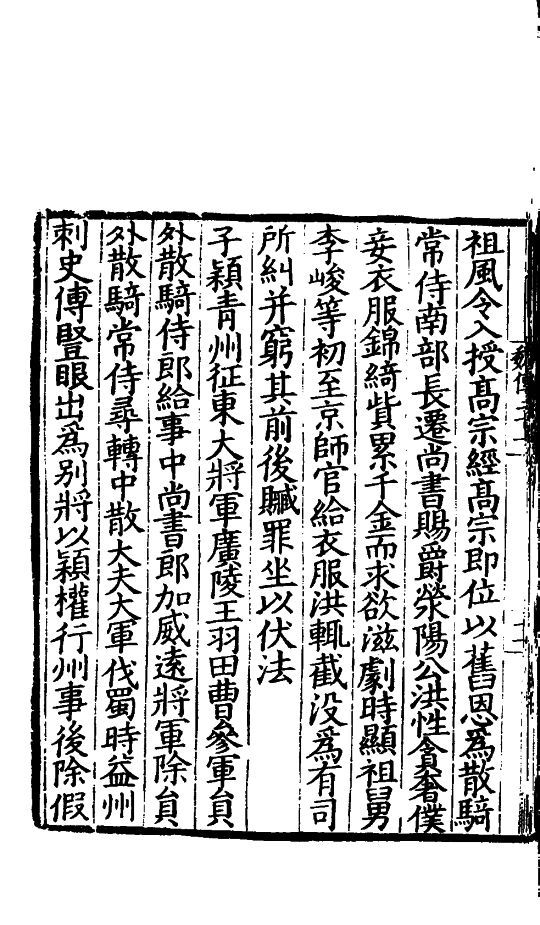 祖風令入授髙宗經髙宗即位以舊恩爲散騎
常侍南部長遷尚書賜爵滎陽公洪性貪奢僕
妾衣服錦綺貲累千金而求欲滋劇時顯祖舅
李峻等初至京師官給衣服洪輒截没爲有司
所糾并窮其前後贓罪坐以伏法
子穎青州征東大將軍廣陵王羽田曹參軍員
外散騎侍郎給事中尚書郎加威遠將軍除員
外散騎常侍尋轉中散大夫大軍伐蜀時益州
刺史傅豎眼出爲别將以穎權行州事後除假